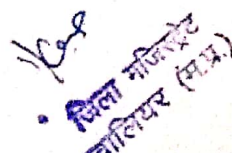 जिला मजिस्ट्रेट
ग्वालियर (म.प्र.)